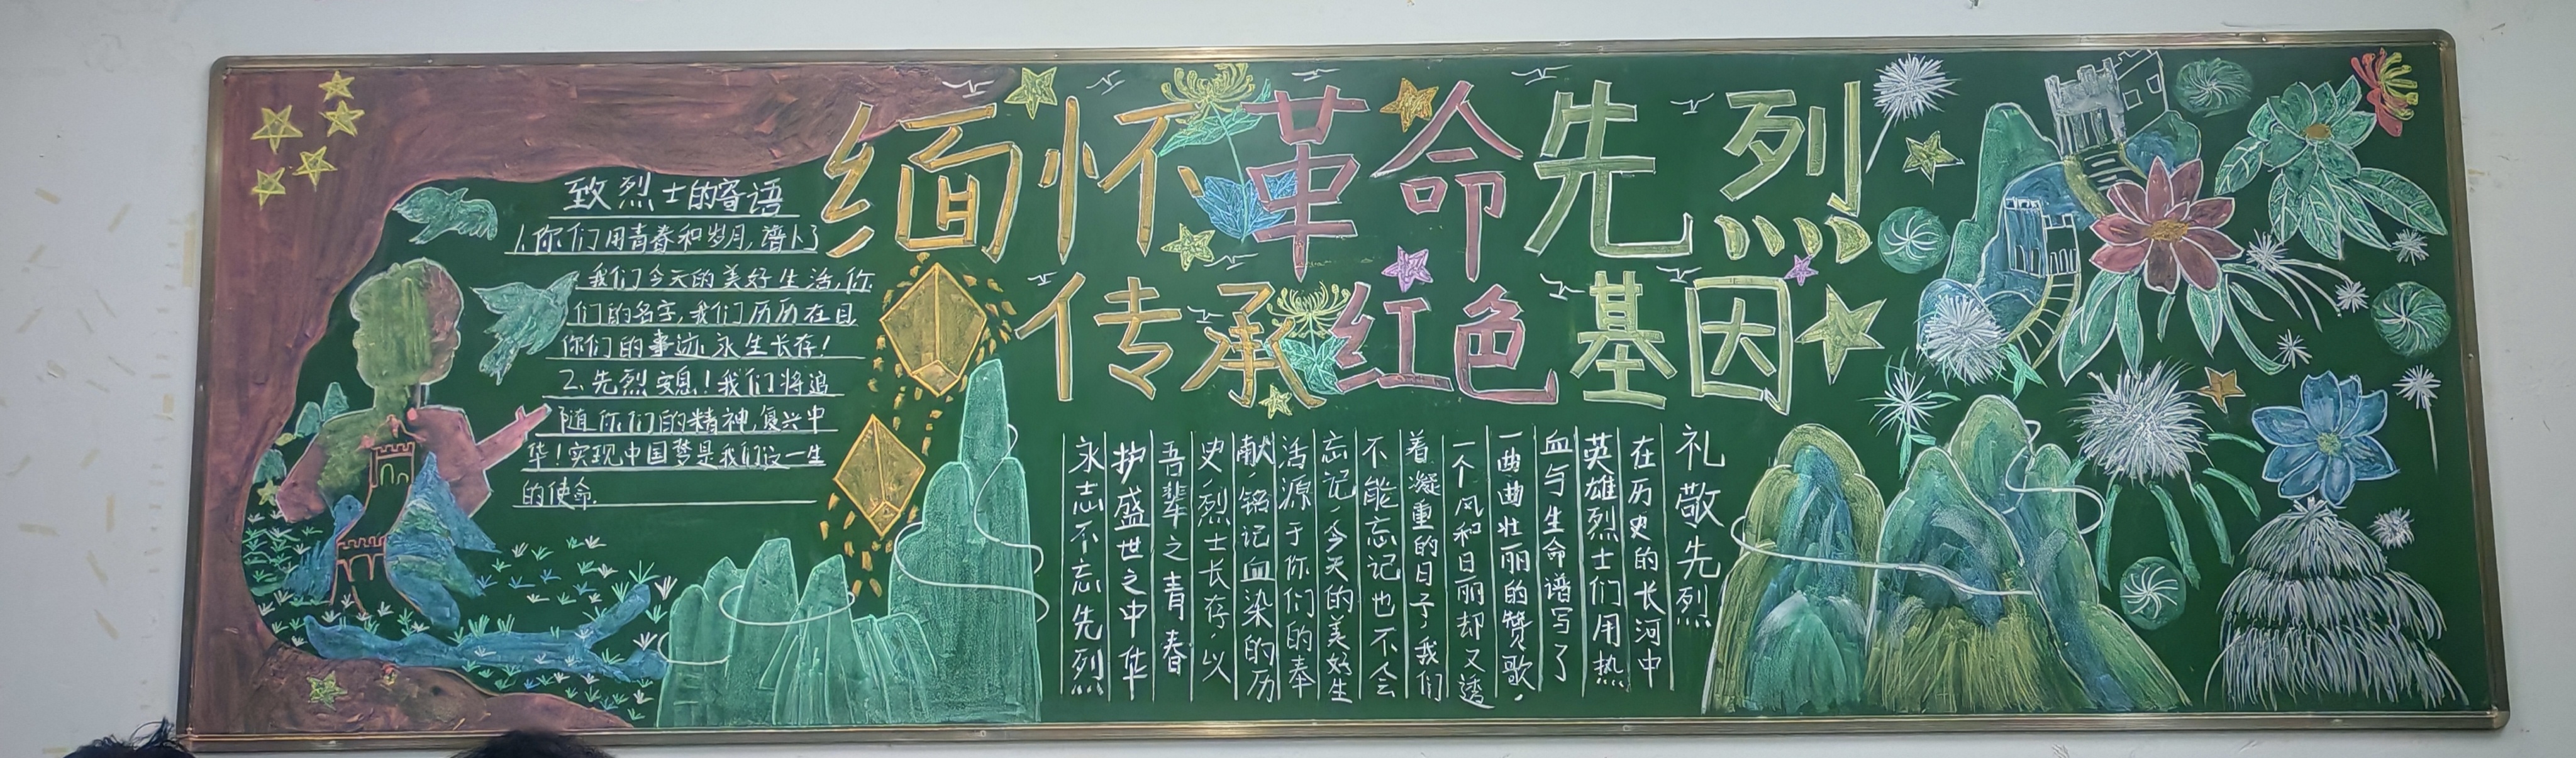 缅怀革命先烈
传承红色基因
致烈士的寄语
1.你们用青春和岁月,谱卜了
我们今天的美好生活,你
们的名字,我们历历在目
你们的事迹永生长存!
2.先烈安息!我们将追
随你们的精神,复兴中
华!实现中国梦是我们这一生
的使命.
礼敬先烈
在历史的长河中
英雄烈士们用热
血与生命谱写了
一曲曲壮丽的赞歌,
一个风和日丽却又透
着凝重的日子,我们
不能忘记也不会
忘记,今天的美好生
活源于你们的奉
献,铭记血染的历
史,烈士长存,以
吾辈之青春
护盛世之中华
永志不忘先烈